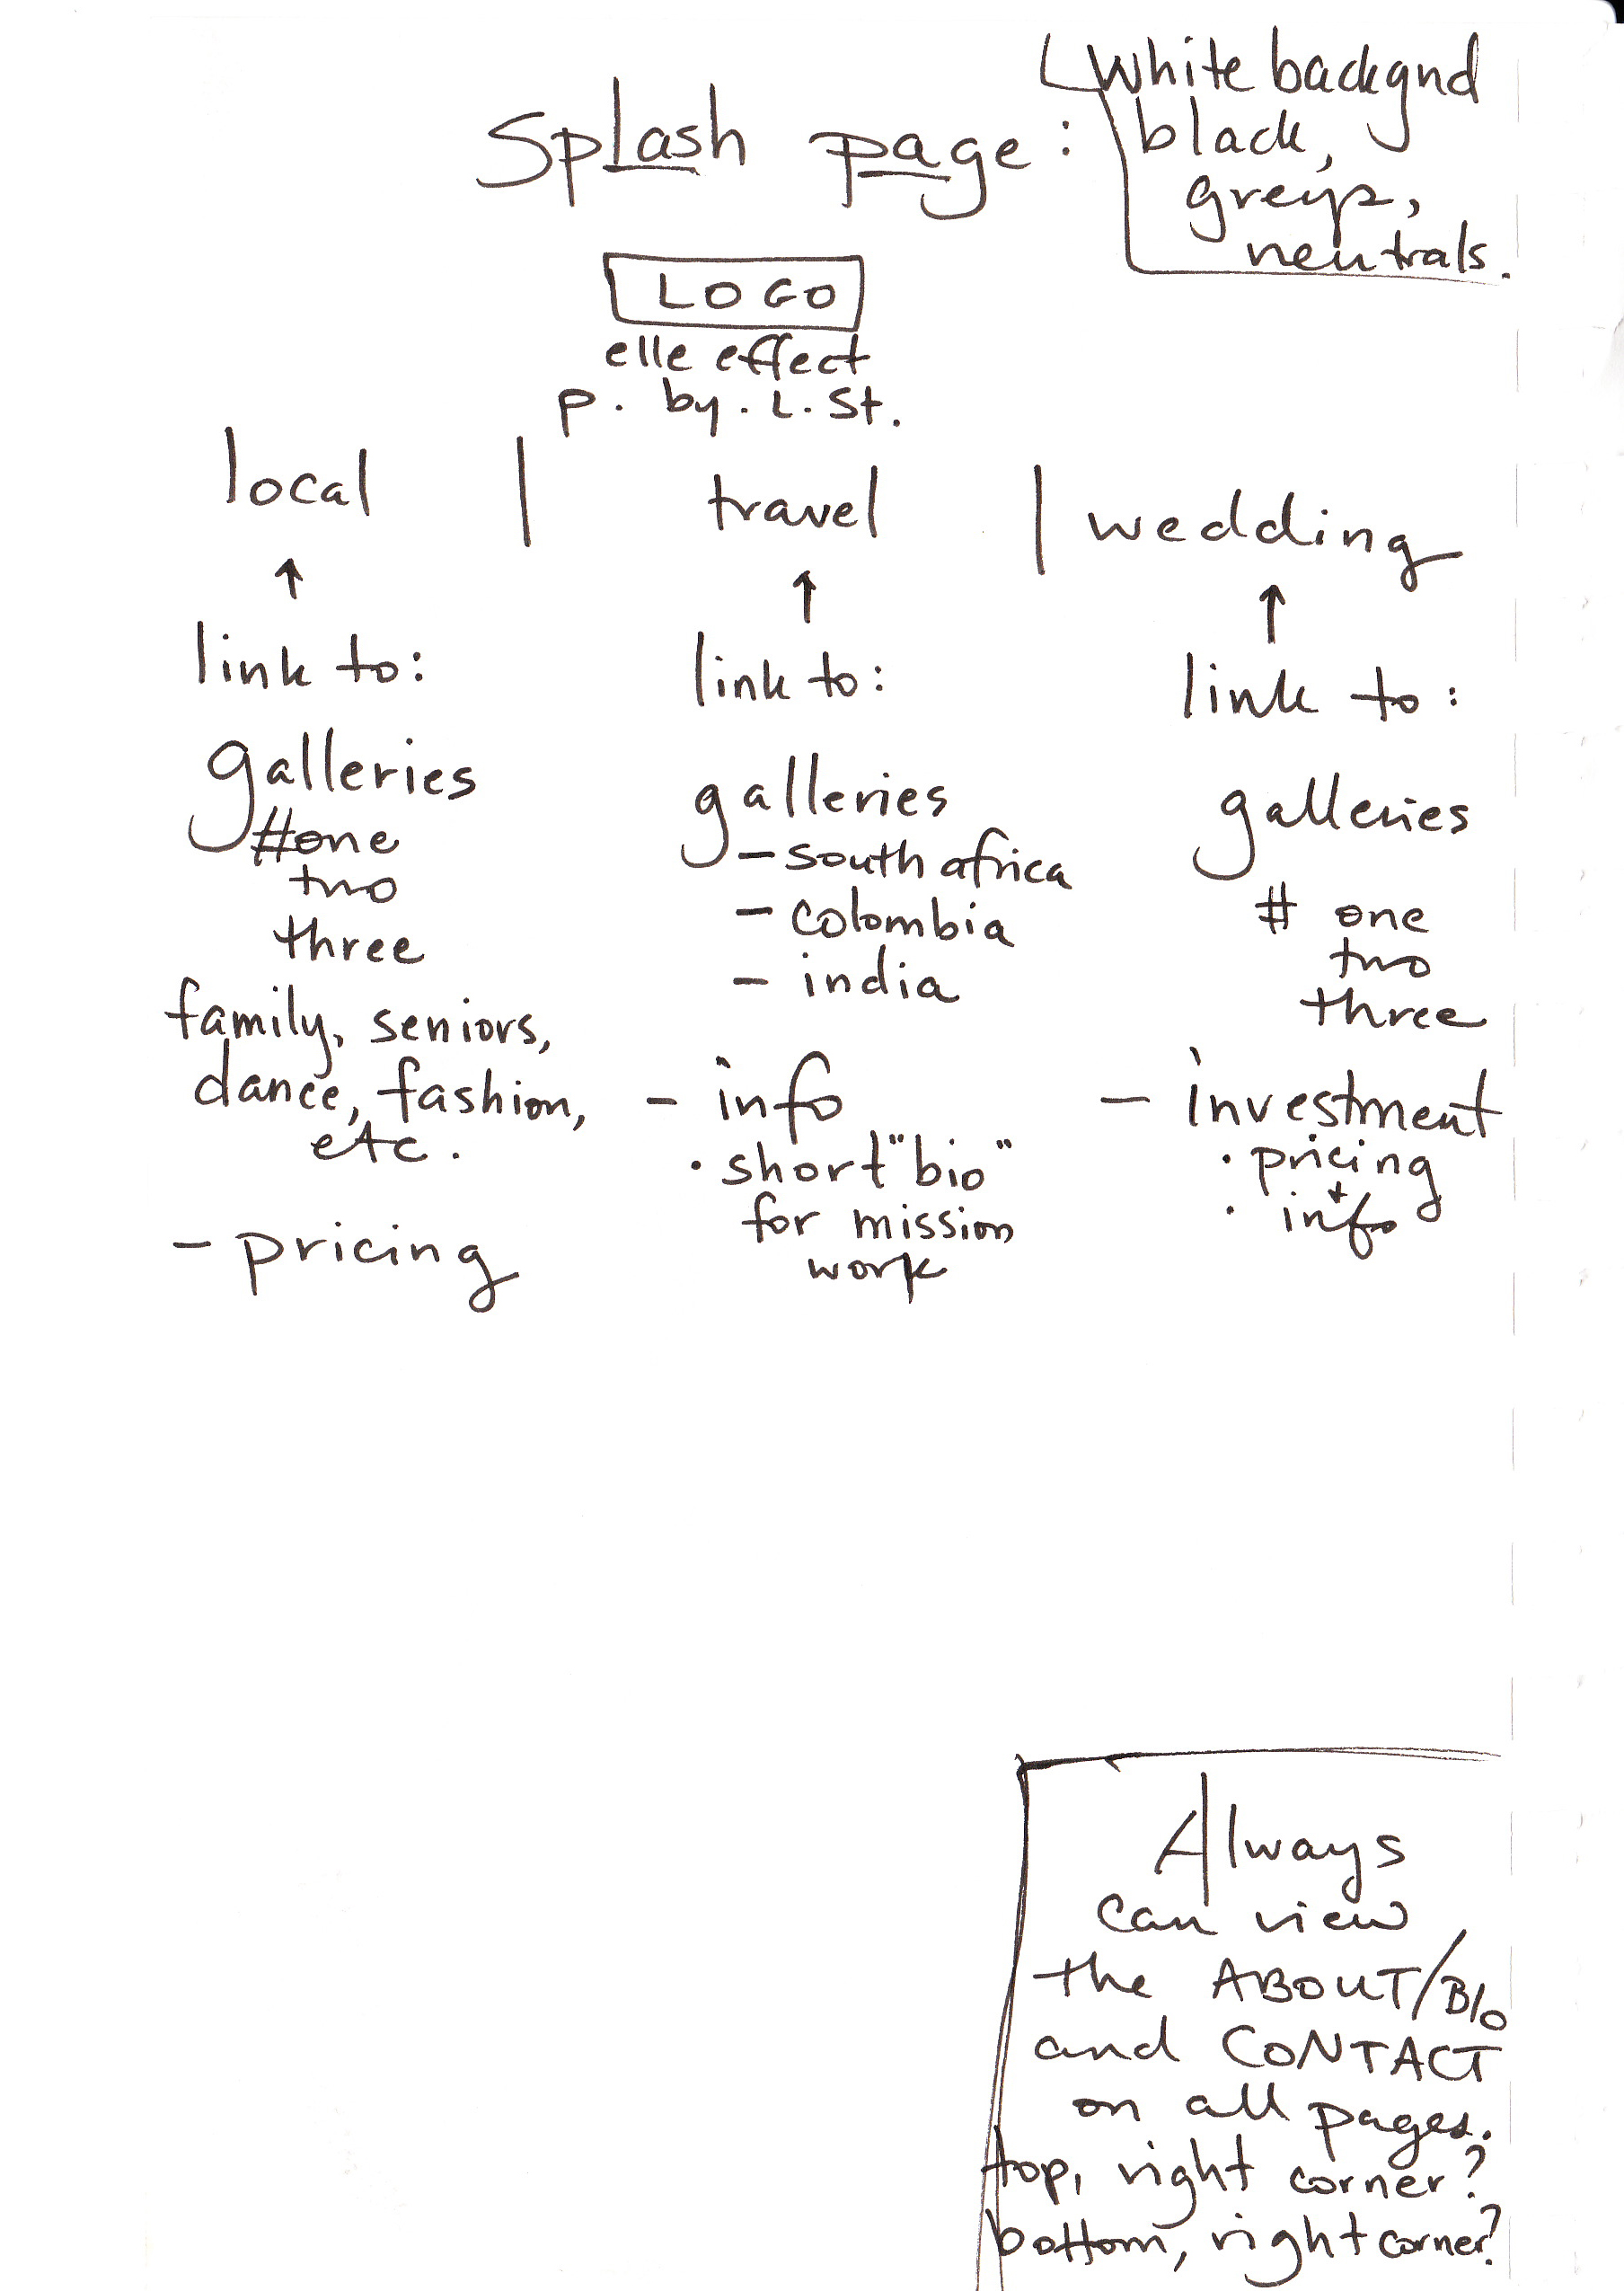 white backgnd
Splash page: black,
greys,
neutrals.
LOGO
elle effect
p. by. L. St.
local | travel | wedding
↑ ↑ ↑
link to:
galleries
#one
two
three
family, seniors,
dance, fashion,
etc.
- pricing
link to:
galleries
- south africa
- colombia
- india
- info
• short "bio"
for mission
work
link to:
galleries
# one
two
three
- investment
• pricing
+
• info
Always
can view
the ABOUT/BIO
and CONTACT
on all pages.
top, right corner?
bottom, right corner?